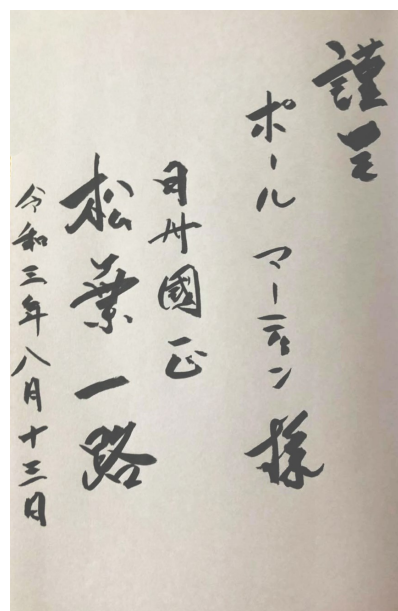 謹言
ポール マーティン 様
日州國正
松葉一路
令和三年八月十三日